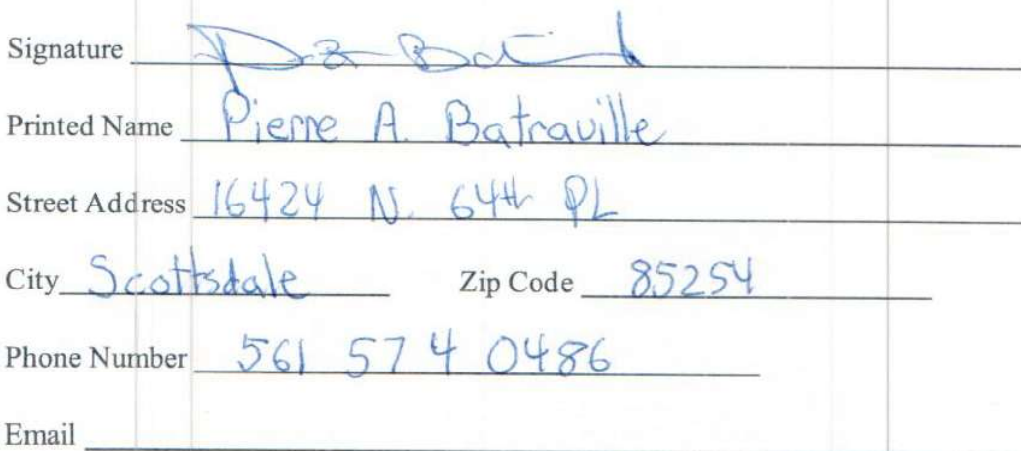 Signature
Printed Name Pierre A. Batraville
Street Address 16424 N. 64th PL
City Scottsdale Zip Code 85254
Phone Number 561 574 0486
Email